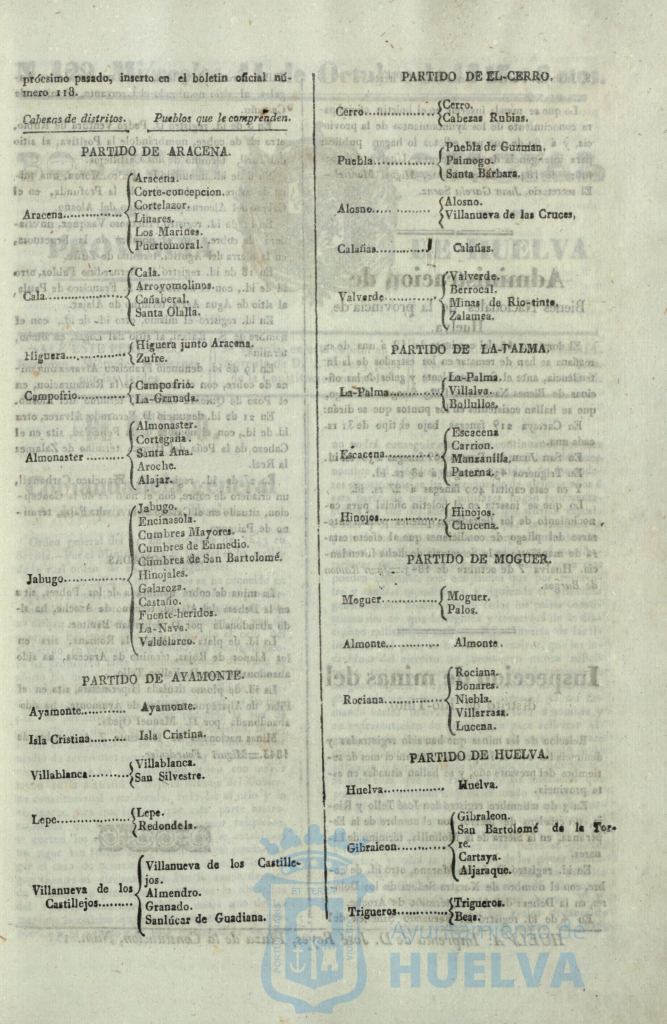 prócsimo pasado, inserto en el boletin oficial nú-
mero 118.
Cabezas de distritos. Pueblos que le comprenden.
PARTIDO DE ARACENA.
Aracena
Aracena.
Corte-concepcion.
Cortelazor.
Linares.
Los Marines.
Puertomoral.
Cala
Cala.
Arroyomolinos.
Cañaberal.
Santa Olalla.
Higuera
Higuera junto Aracena.
Zufre.
Campofrio
Campofrio.
La-Granada.
Almonaster
Almonaster.
Cortegana.
Santa Ana.
Aroche.
Alajar.
Jabugo
Jabugo.
Encinasola.
Cumbres Mayores.
Cumbres de Enmedio.
Cumbres de San Bartolomé.
Hinojales.
Galaroza.
Castaño.
Fuente-heridos.
La-Nava.
Valdelarco.
PARTIDO DE AYAMONTE.
Ayamonte........... Ayamonte.
Isla Cristina........ Isla Cristina.
Villablanca
Villablanca.
San Silvestre.
Lepe
Lepe.
Redondela.
Villanueva de los
Castillejos
Villanueva de los Castille-
jos.
Almendro.
Granado.
Sanlúcar de Guadiana.
PARTIDO DE EL-CERRO.
Cerro
Cerro.
Cabezas Rubias.
Puebla
Puebla de Guzman.
Paimogo.
Santa Bárbara.
Alosno
Alosno.
Villanueva de las Cruces,
Calañas........ Calañas.
Valverde
Valverde.
Berrocal.
Minas de Rio-tinto.
Zalamea.
PARTIDO DE LA-PALMA.
La-Palma
La-Palma.
Villalva.
Bollullos.
Escacena
Escacena
Carrion.
Manzanilla.
Paterna.
Hinojos
Hinojos.
Chucena.
PARTIDO DE MOGUER.
Moguer
Moguer.
Palos.
Almonte............. Almonte.
Rociana
Rociana.
Bonares.
Niebla.
Villarrasa.
Lucena.
PARTIDO DE HUELVA.
Huelva............... Huelva.
Gibraleon
Gibraleon.
San Bartolomé de la Tor-
re.
Cartaya.
Aljaraque.
Trigueros
Trigueros.
Beas.
Ayuntamiento de
HUELVA